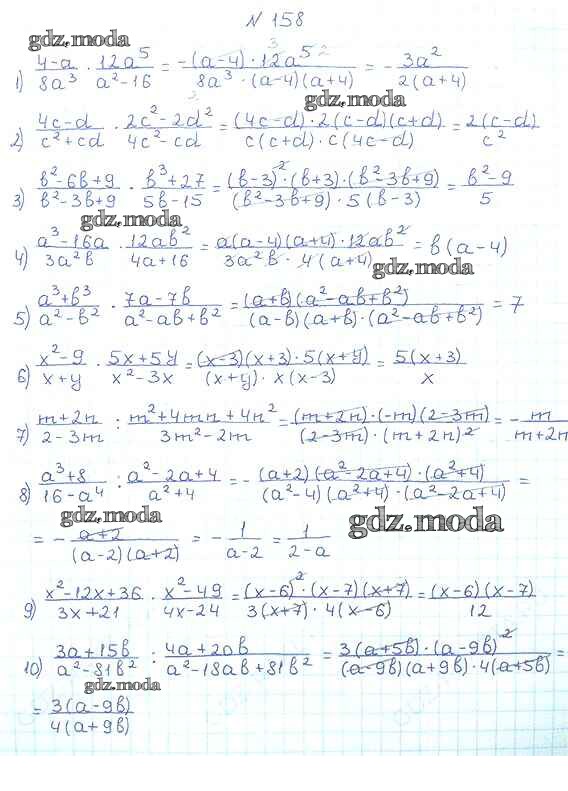 N 158
gdz.moda
1) (4-a)/(8a³) · (12a⁵)/(a²-16) = (-(a-4)·12a⁵)/(8a³·(a-4)(a+4)) = -(3a²)/(2(a+4))
gdz.moda
2) (4c-d)/(c²+cd) · (2c²-2d²)/(4c²-cd) = ((4c-d)·2(c-d)(c+d))/(c(c+d)·c(4c-d)) = (2(c-d))/c²
3) (b²-6b+9)/(b²-3b+9) · (b³+27)/(5b-15) = ((b-3)²·(b+3)·(b²-3b+9))/((b²-3b+9)·5(b-3)) = (b²-9)/5
gdz.moda
4) (a³-16a)/(3a²b) · (12ab²)/(4a+16) = (a(a-4)(a+4)·12ab²)/(3a²b·4(a+4)) = b(a-4)
gdz.moda
5) (a³+b³)/(a²-b²) · (7a-7b)/(a²-ab+b²) = ((a+b)(a²-ab+b²))/((a-b)(a+b)·(a²-ab+b²)) = 7
6) (x²-9)/(x+y) · (5x+5y)/(x²-3x) = ((x-3)(x+3)·5(x+y))/((x+y)·x(x-3)) = (5(x+3))/x
7) (m+2n)/(2-3m) : (m²+4mn+4n²)/(3m²-2m) = ((m+2n)·(-m)(2-3m))/((2-3m)·(m+2n)²) = -m/(m+2n
8) (a³+8)/(16-a⁴) : (a²-2a+4)/(a²+4) = -((a+2)(a²-2a+4)·(a²+4))/((a²-4)(a²+4)·(a²-2a+4)) =
gdz.moda
gdz.moda
= -(a+2)/((a-2)(a+2)) = -1/(a-2) = 1/(2-a)
9) (x²-12x+36)/(3x+21) · (x²-49)/(4x-24) = ((x-6)²·(x-7)(x+7))/(3(x+7)·4(x-6)) = ((x-6)(x-7))/12
10) (3a+15b)/(a²-81b²) : (4a+20b)/(a²-18ab+81b²) = (3(a+5b)·(a-9b)²)/((a-9b)(a+9b)·4(a+5b)) =
gdz.moda
= (3(a-9b))/(4(a+9b))